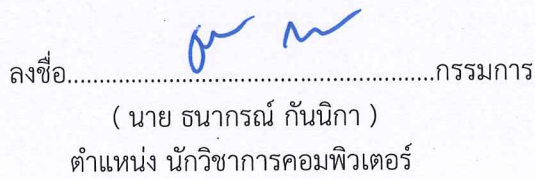 ลงชื่อ....................................................กรรมการ
( นาย ธนากรณ์ กันนิกา )
ตำแหน่ง นักวิชาการคอมพิวเตอร์